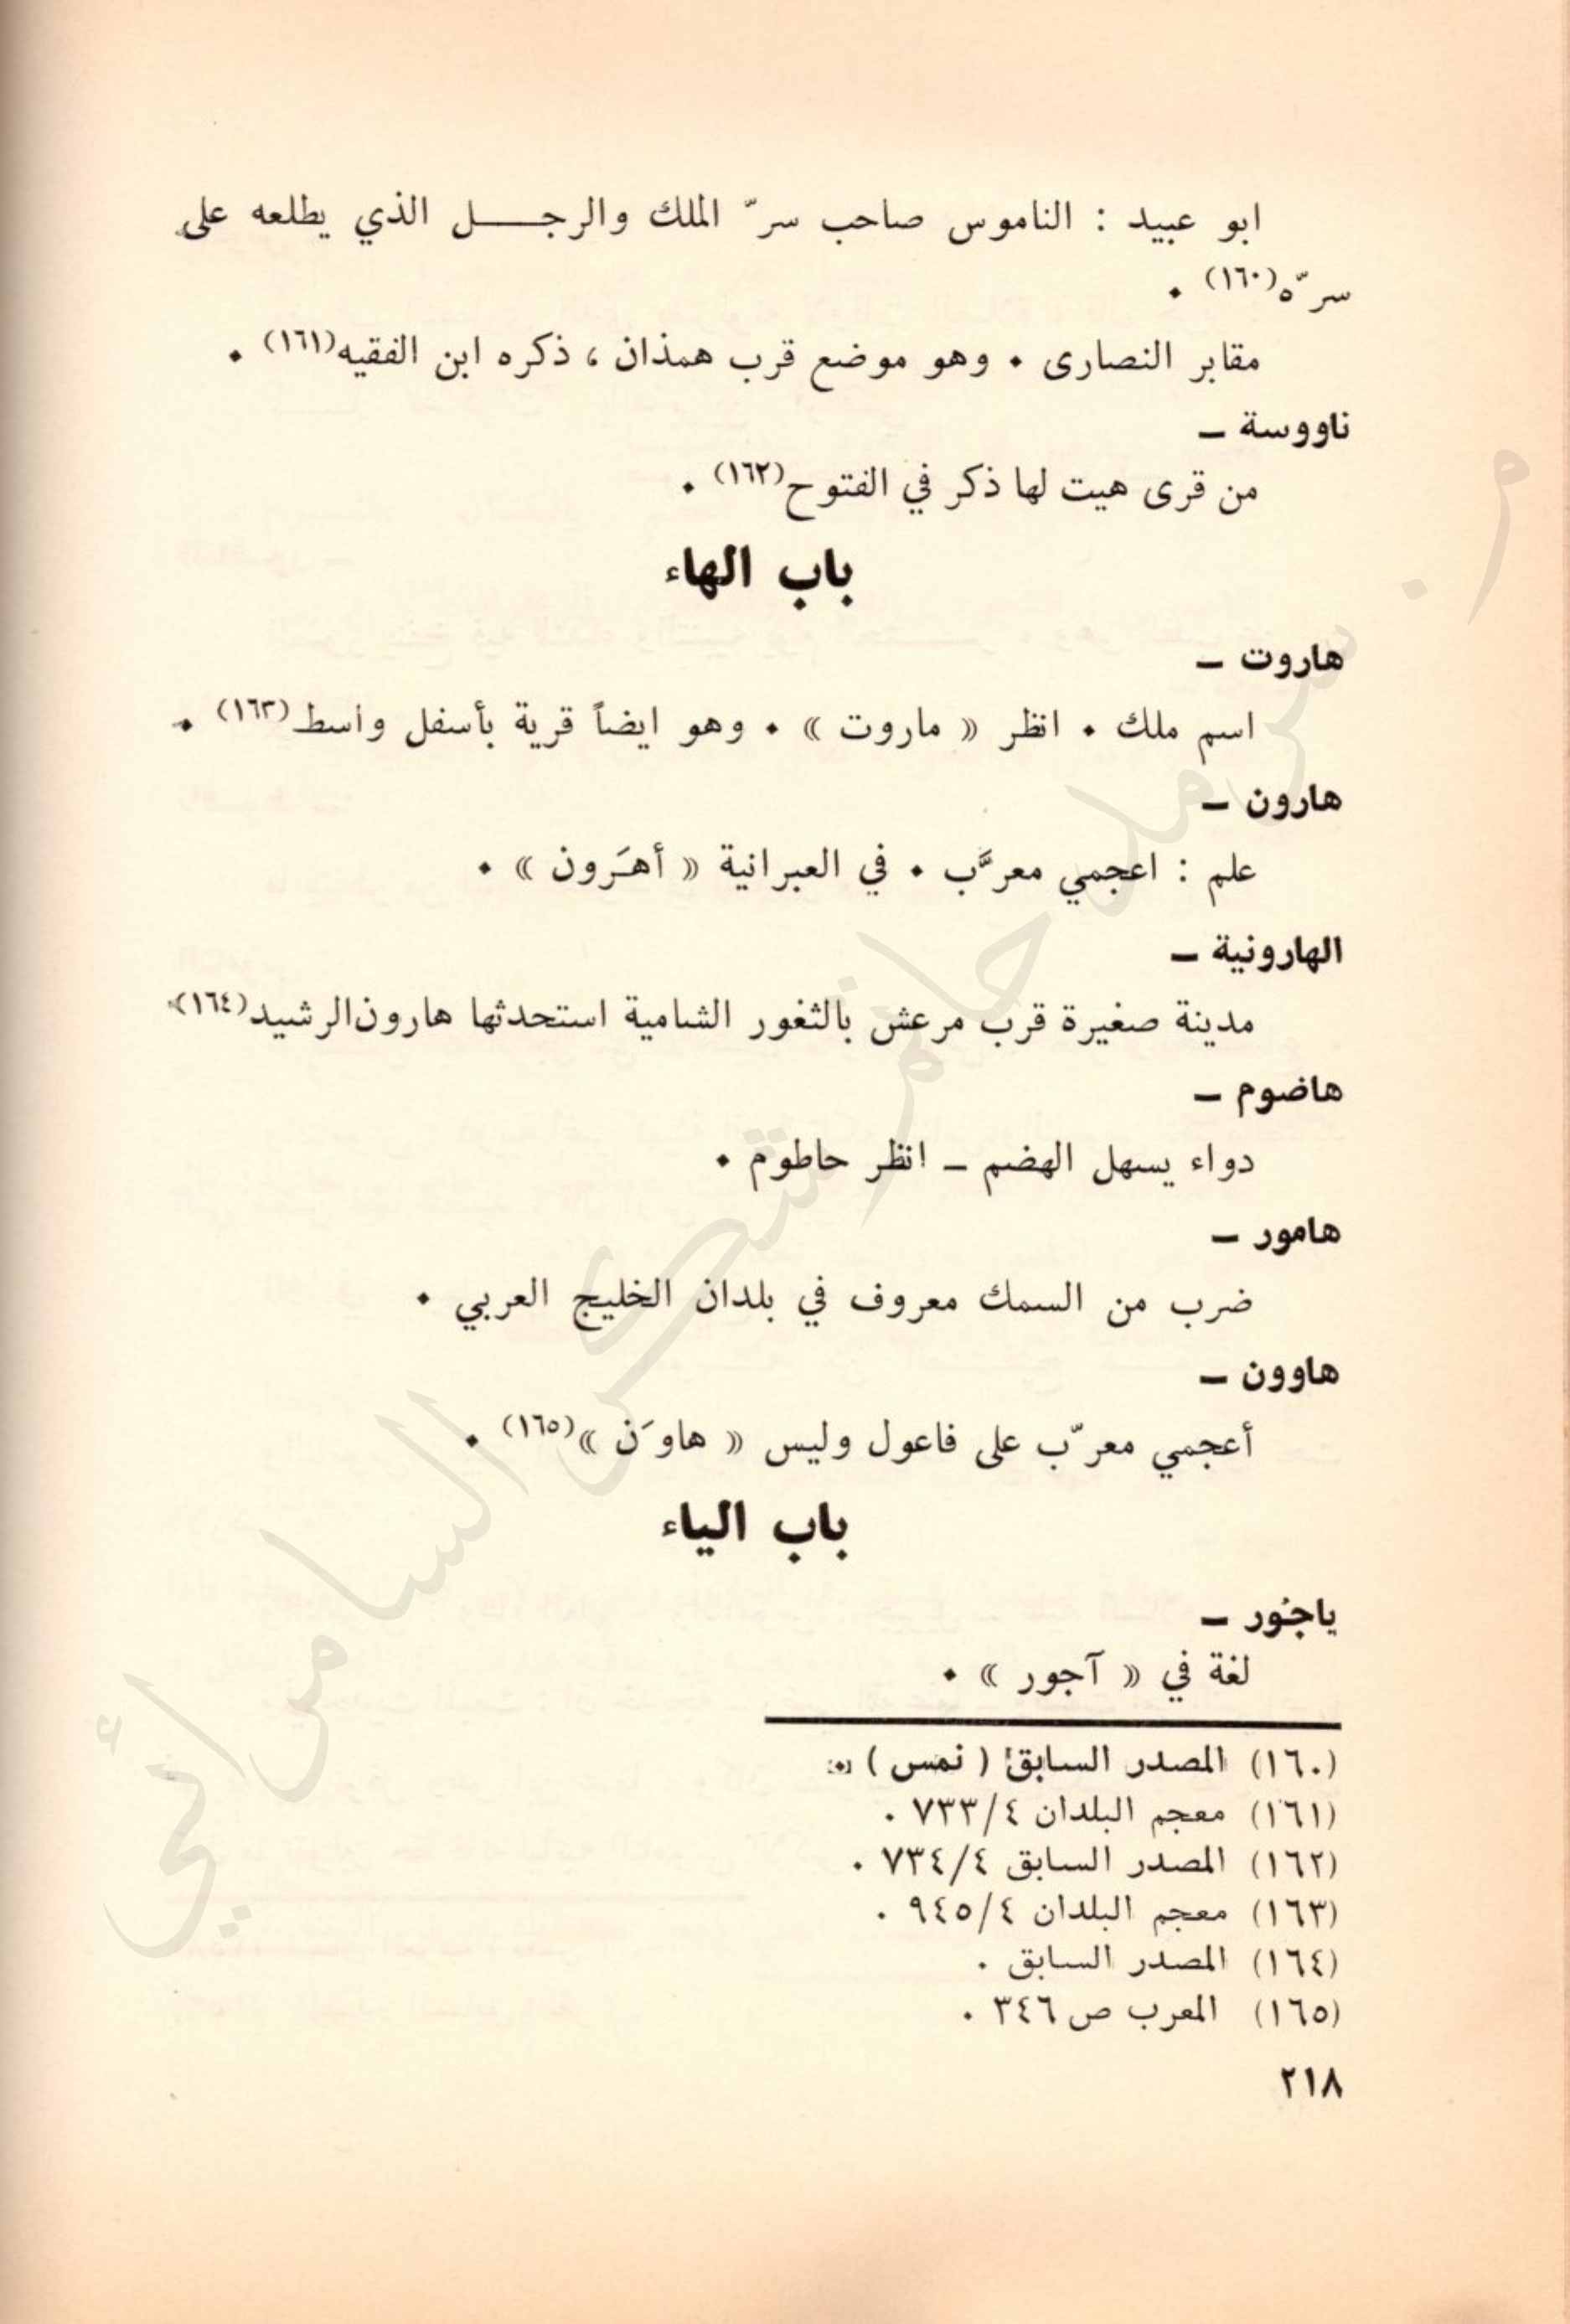 ابو عبيد : الناموس صاحب سرّ الملك والرجـــــل الذي يطلعه على
سرّه(١٦٠) ٠
مقابر النصارى ٠ وهو موضع قرب همذان ، ذكره ابن الفقيه(١٦١) ٠
ناووسة ـ
من قرى هيت لها ذكر في الفتوح(١٦٢) ٠
باب الهاء
هاروت ـ
اسم ملك ٠ انظر « ماروت » ٠ وهو ايضاً قرية بأسفل واسط(١٦٣) ٠
هارون ـ
علم : اعجمي معرَّب ٠ في العبرانية « أهَرون » ٠
الهارونية ـ
مدينة صغيرة قرب مرعش بالثغور الشامية استحدثها هارون الرشيد(١٦٤)
هاضوم ـ
دواء يسهل الهضم ـ انظر حاطوم ٠
هامور ـ
ضرب من السمك معروف في بلدان الخليج العربي ٠
هاوون ـ
أعجمي معرّب على فاعول وليس « هاوَن »(١٦٥) ٠
باب الياء
ياجور ـ
لغة في « آجور » ٠
(١٦٠) المصدر السابق ( نمس ) ٠
(١٦١) معجم البلدان ٧٣٣/٤ ٠
(١٦٢) المصدر السابق ٧٣٤/٤ ٠
(١٦٣) معجم البلدان ٩٤٥/٤ ٠
(١٦٤) المصدر السابق ٠
(١٦٥) المعرب ص ٣٤٦ ٠
٢١٨